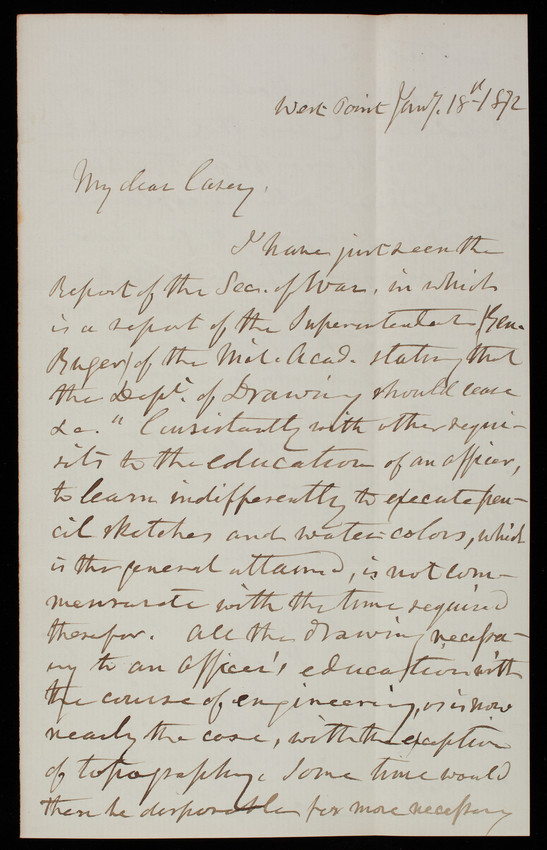 West Point Jany. 18th 1872
My dear Casey,
I have just seen the
Report of the Sec. of War, in which
is a report of the Superintendent (Gen.
Ruger) of the Mil. Acad. stating that
the Dept. of Drawing should cease
&c. "Consistently with other requi-
sits to the education of an officer,
to learn indifferently to execute pen-
cil sketches and water-colors, which
is the general attained, is not com-
mensurate with the time required
therefor. All the drawing necessa-
ry to an officer's education with
the course of engineering, as is now
nearly the case, with the exception
of topography. Some time would
then be disposable for more necessary